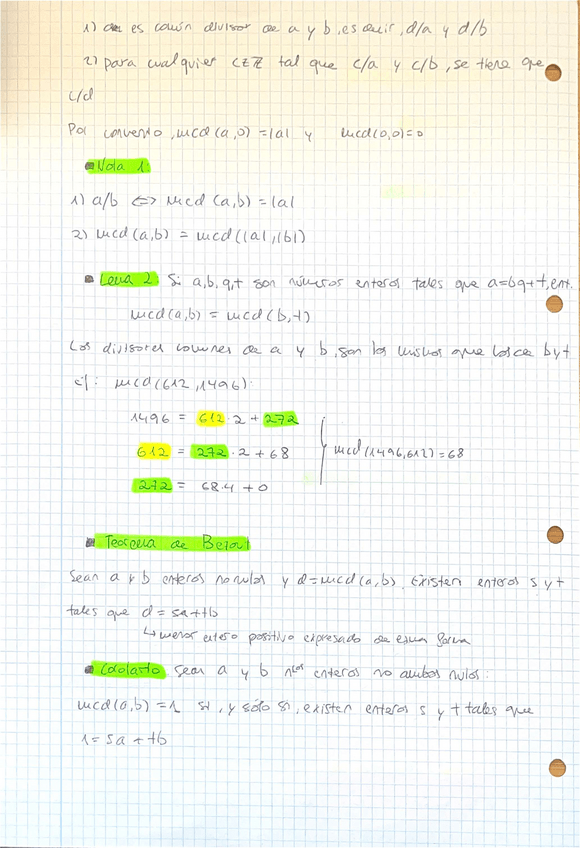 1) d es común divisor de a y b, es decir, d/a y d/b
2) para cualquier c∈ℤ tal que c/a y c/b, se tiene que
c/d
Por convenio, mcd(a,0) = |a| y mcd(0,0)=0
Nota 1:
1) a/b ⇔ mcd(a,b) = |a|
2) mcd(a,b) = mcd(|a|,|b|)
Lema 2: Si a,b,q,t son números enteros tales que a=bq+t, ent.
mcd(a,b) = mcd(b,t)
Los divisores comunes de a y b, son los mismos que los de b y t
ej: mcd(612,1496):
1496 = 612·2 + 272
612 = 272·2 + 68
272 = 68·4 + 0
mcd(1496,612) = 68
Teorema de Bezout
Sean a y b enteros no nulos y d=mcd(a,b). Existen enteros s y t
tales que d = sa+tb
↳ menor entero positivo expresado de esa forma
Corolario sean a y b nºs enteros no ambos nulos:
mcd(a,b) = 1 si, y sólo si, existen enteros s y t tales que
1 = sa + tb